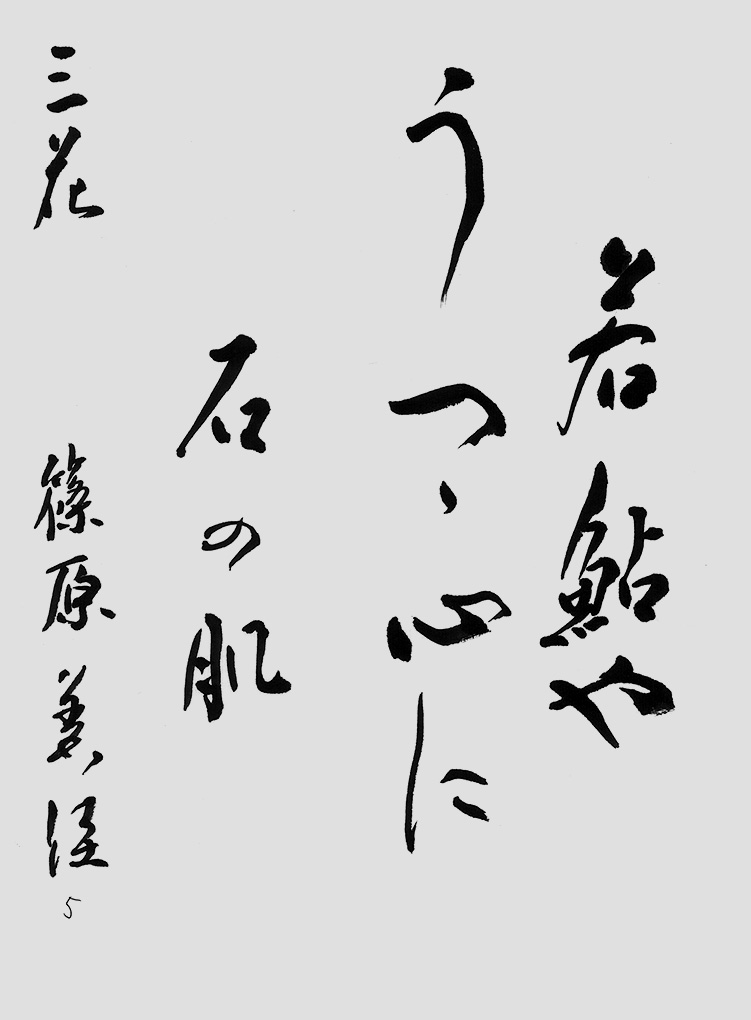 若鮎や
うつゝ心に
石の肌
三花 篠原美
5